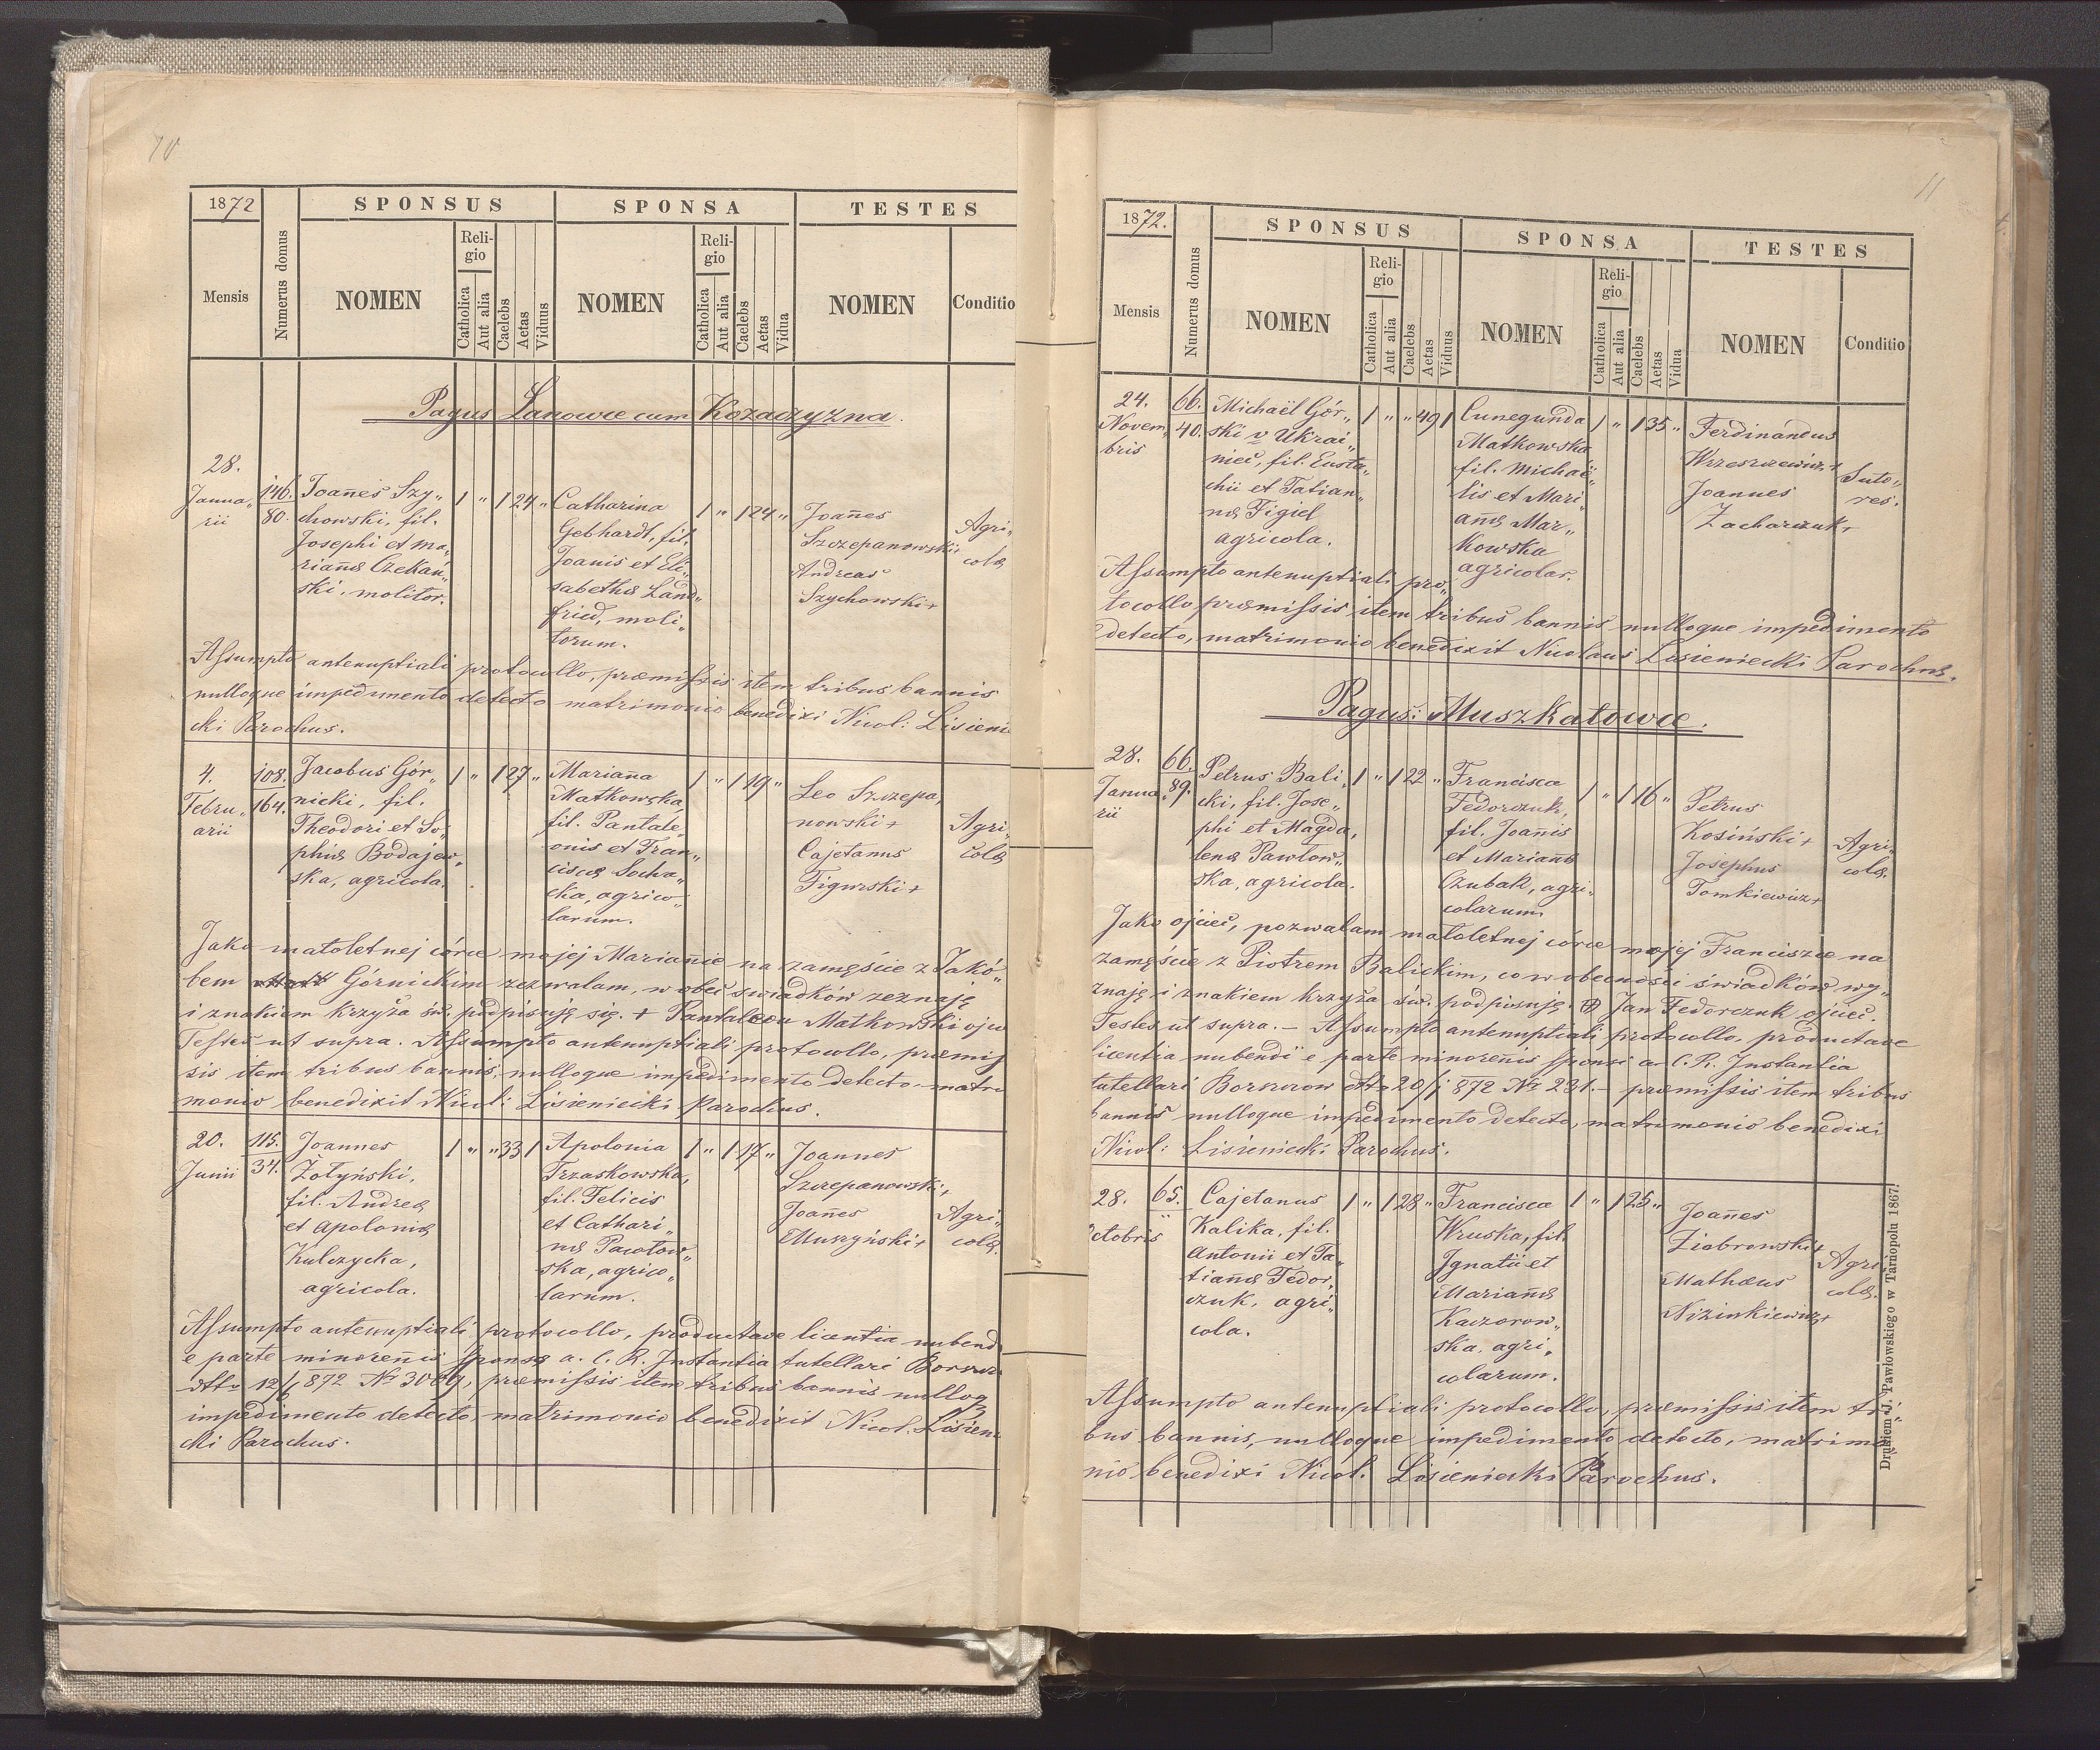 10
1872
Mensis
Numerus domus
SPONSUS
NOMEN
Reli-
gio
Catholica
Aut alia
Caelebs
Aetas
Viduus
SPONSA
NOMEN
Reli-
gio
Catholica
Aut alia
Caelebs
Aetas
Vidua
TESTES
NOMEN
Conditio
Pagus Lanowce cum Kozaczyzna.
28.
Janua„
rii
146.
80.
Joan̄es Szy„
chowski, fil.
Josephi et Ma„
rian̄æ Czekań„
ski, molitor.
1 „ 1 24 „
Catharina
Gebhardt, fil.
Joanis et Eli„
sabethæ Land„
fried, moli„
torum.
1 „ 1 24 „
Joan̄es
Szczepanowski+
Andreas
Szychowski+
Agri„
colæ
Assumpto antenuptiali protocollo, præmissis item tribus bannis
nulloque impedimento detecto matrimonio benedixi Nicol: Lisieni
cki Parochus.
4.
Febru„
arii
108.
164.
Jacobus Gór„
nicki, fil.
Theodori et So„
phiæ Bodajew„
ska, agricola.
1 „ 1 27 „
Marian̄a
Matkowska,
fil. Pantale„
onis et Fran„
ciscæ Socha„
cka, agrico„
larum.
1 „ 1 19 „
Leo Szczepa„
nowski+
Cajetanus
Figurski+
Agri„
colæ
Jako małoletnej córce mojej Marian̄ie na zamęście z Jakó„
bem Górnickim zezwalam, w obec swiadków zeznaję
i znakiem krzyża św. podpisuję się. + Pantaleon Matkowski ojci
Testes ut supra. Assumpto antenuptiali protocollo, præmis
sis item tribus bannis, nulloque impedimento detecto matri
monio benedixit Nicol: Lisieniecki Parochus.
20.
Junii
115.
34.
Joannes
Żołyński,
fil. Andreæ
et Apoloniæ
Kulczycka,
agricola.
1 „ „ 33 1
Apolonia
Trzaskowska,
fil. Felicis
et Cathari„
næ Pawłow„
ska, agrico„
larum.
1 „ 1 17 „
Joannes
Szczepanowski+
Joan̄es
Muszyński+
Agri„
colæ.
Assumpto antenuptiali protocollo, productave licentia nubend
e parte minoren̄is sponsæ a C. R. Instantia tutellari Borszcz
dtto 12/6 872 No 3069, præmissis item tribus bannis nulloq
impedimento detecto matrimonio benedixit Nicol. Lisieni
cki Parochus.
11
1872.
Mensis
Numerus domus
SPONSUS
NOMEN
Reli-
gio
Catholica
Aut alia
Caelebs
Aetas
Viduus
SPONSA
NOMEN
Reli-
gio
Catholica
Aut alia
Caelebs
Aetas
Vidua
TESTES
NOMEN
Conditio
24.
Novem„
bris
66.
40.
Michaël Gór„
ski v Ukrai„
niec, fil. Eusta„
chii et Tatian„
næ Figiel
agricola.
1 „ „ 49 1
Cunegunda
Matkowska
fil. Michaë„
lis et Mari„
an̄æ Mar„
kowska
agricolar.
1 „ 1 35 „
Ferdinandus
Wrzeszczewicz+
Joannes
Zacharczuk+
Suto„
res.
Assumpto antenuptiali pro„
tocollo præmissis item tribus bannis nulloque impedimento
detecto, matrimonio benedixit Nicolaus Lisieniecki Parochus.
Pagus: Muszkatowce.
28.
Janua„
rii
66.
89.
Petrus Bali„
cki, fil. Jose„
phi et Magda„
lenæ Pawłow„
ska, agricola.
1 „ 1 22 „
Francisca
Fedorczuk,
fil. Joan̄is
et Marian̄æ
Czubak, agri„
colarum.
1 „ 1 16 „
Petrus
Kosiński+
Josephus
Tomkiewicz+
Agri„
colæ.
Jako ojciec, pozwalam małoletnej córce mojej Franciszce na
zamęście z Piotrem Balickim, co w obecności świadków wy„
znaję i znakiem krzyża św. podpisuję. + Jan Fedorczuk ojciec.
Testes ut supra. – Assumpto antenuptiali protocollo, productave
licentia nubendi e parte minoren̄is sponsi a C. R. Instantia
tutellari Borszczow dtto 20/1 872 No 231. – præmissis item tribus
bannis nulloque impedimento detecto, matrimonio benedixi
Nicol: Lisieniecki Parochus.
28.
Octobris
65.
„
Cajetanus
Kalika, fil.
Antonii et Ta„
tian̄æ Fedor„
czuk, agri„
cola.
1 „ 1 28 „
Francisca
Wruska, fil.
Ignatii et
Marian̄æ
Kaczorow„
ska, agri„
colarum.
1 „ 1 25 „
Joan̄es
Ziobrowski+
Mathæus
Nizinkiewicz+
Agri
colæ.
Assumpto antenuptiali protocollo, præmissis item tri„
bus bannis, nulloque impedimento detecto, matrimo
nio benedixi Nicol. Lisieniecki Parochus.
Drukiem J. Pawłowskiego w Tarnopolu 1867.